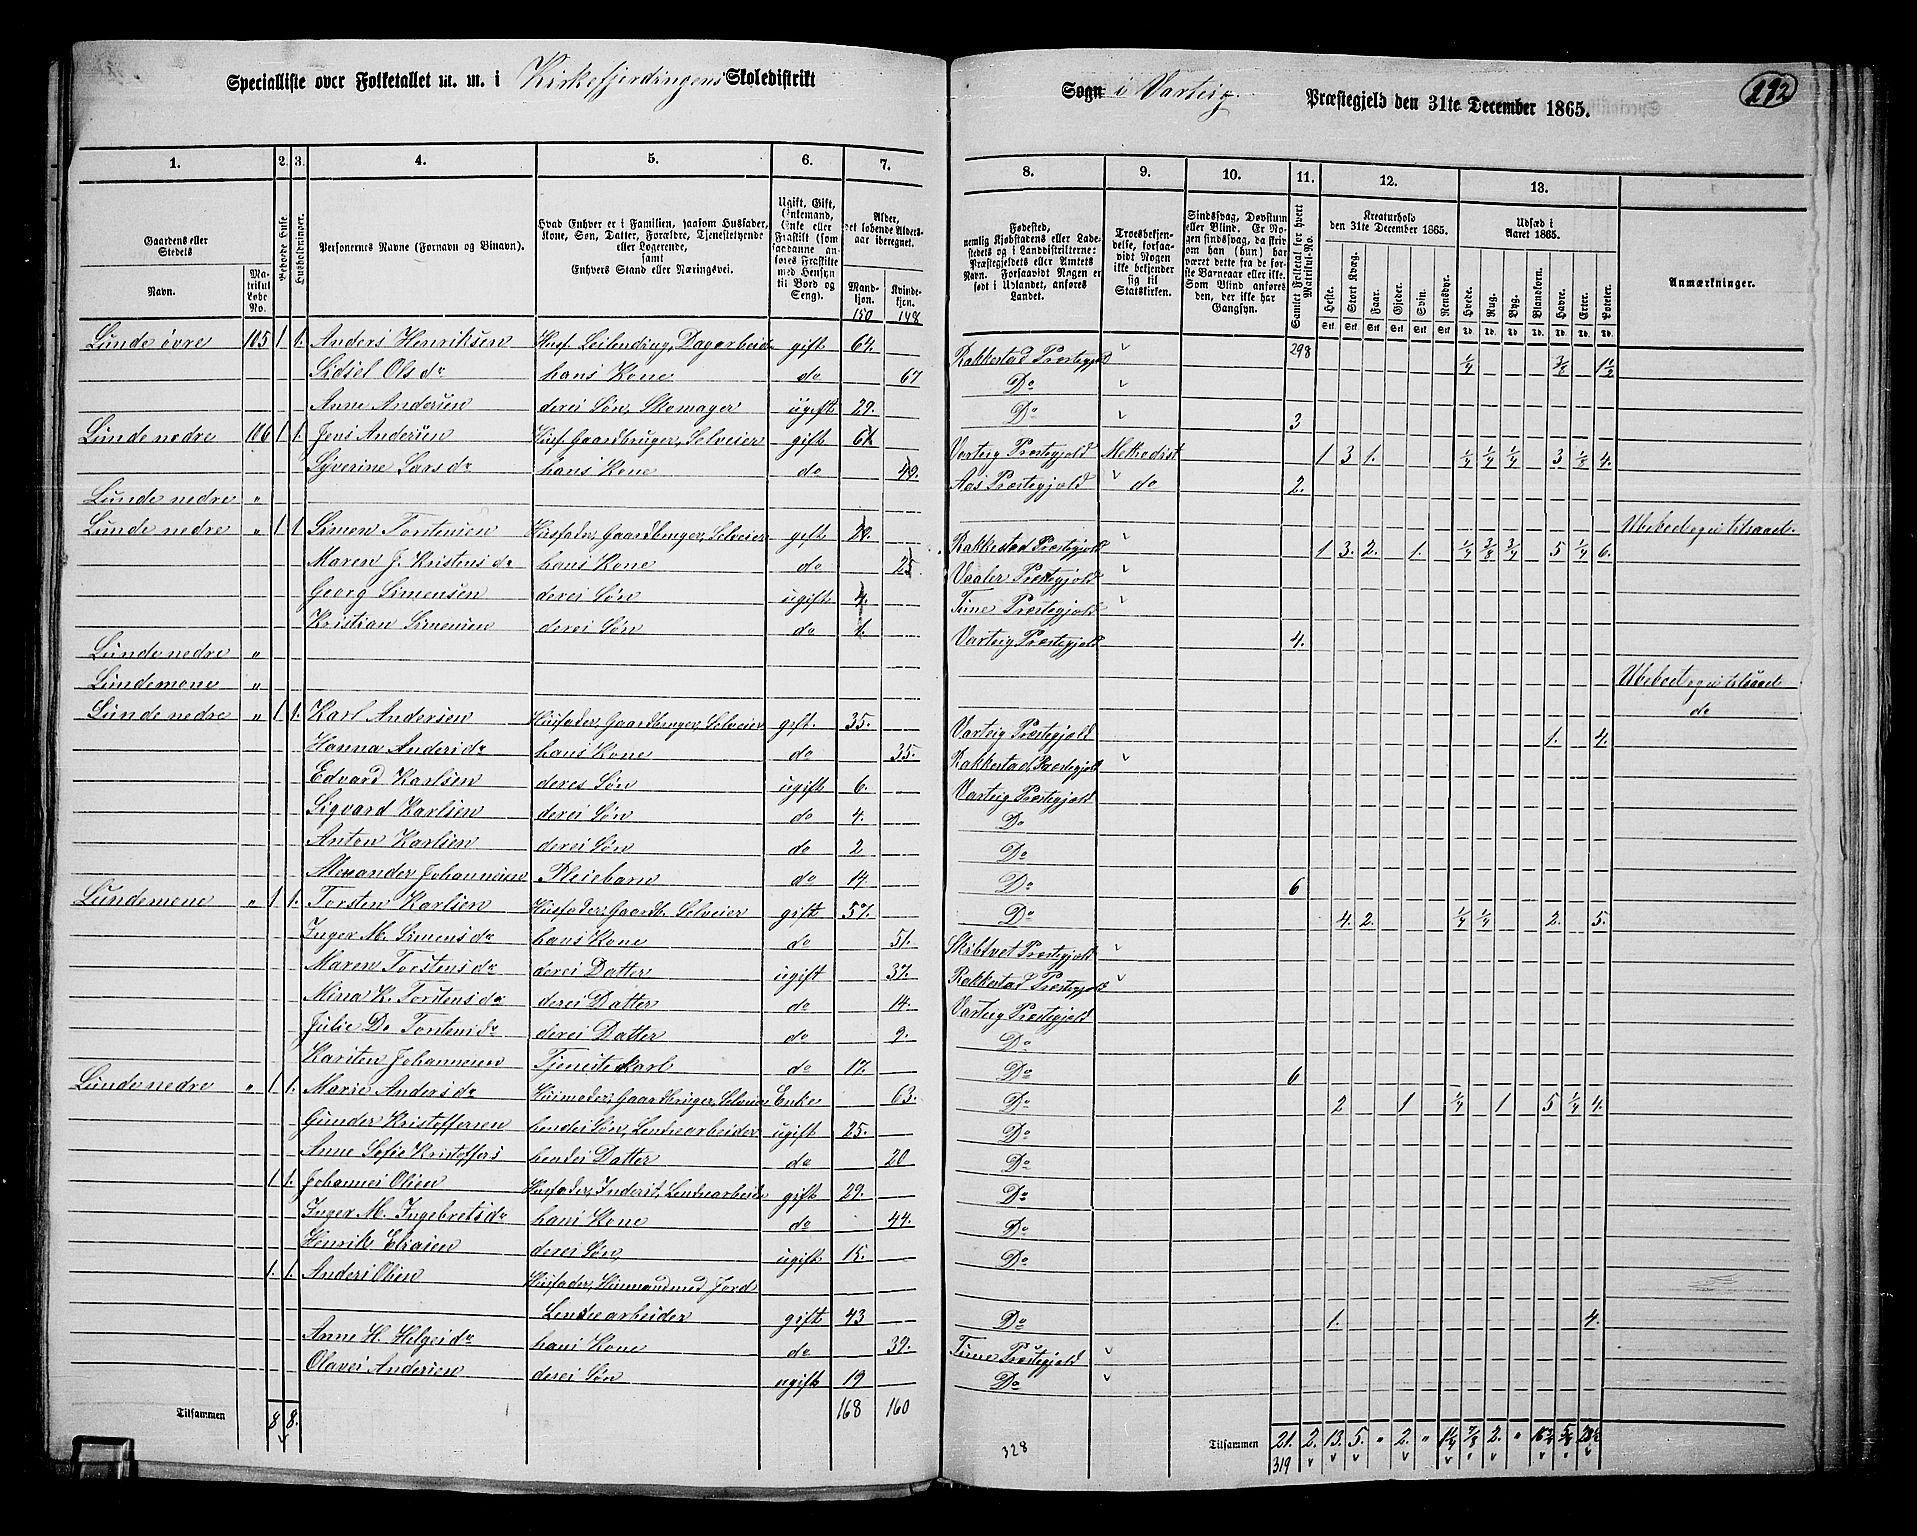 Specialliste over Folketallet m. m. i Kirkefjerdingens Skoledistrikt Sogn i Varteig Præstegjeld den 31te December 1865. 292
1. 2. 3. 4. 5. 6. 7. 8. 9. 10. 11. 12. 13.
Gaardens eller Stedets Navn. Matrikul Løbe No. Beboede Huse. Husholdninger. Personernes Navne (Fornavn og Binavn). Hvad Enhver er i Familien, saasom Husfader, Kone, Søn, Datter, Forældre, Tjenestetyende eller Logerende, samt Enhvers Stand eller Næringsvei. Ugift, Gift, Enkemand, Enke eller Fraskilt (som saadanne anføres Fraskilte med Hensyn til Bord og Seng). Alder, det løbende Aldersaar iberegnet. Mandkjøn. Kvindekjøn.
Fødested, nemlig Kjøbstadens eller Ladestedets og i Landdistrikterne: Præstegjeldets eller Amtets Navn. Forsaavidt Nogen er født i Udlandet, anføres Landet. Troesbekjendelse, forsaavidt Nogen ikke bekjender sig til Statskirken. Sindssvag, Døvstum eller Blind. Er Nogen sindssvag, da skriv om han (hun) har været dette fra de første Barneaar eller ikke. Som Blind anføres den, der ikke har Gangsyn. Samlet Folketal for hvert Matrikul-No. Kreaturhold den 31te December 1865. Heste. Stort Kvæg. Faar. Gjeder. Svin. Rensdyr. Udsæd i Aaret 1865. Hvede. Rug. Byg. Blandkorn. Havre. Erter. Poteter. Anmærkninger.
150 148 298
Lunde øvre 105 1 1. Anders Henriksen Husf. Leilending, Dagarbeid gift 64. Rakkestad Præstegjeld 1/4 3/8 1 1/2
Sidsel Olsdr hans Kone do 67 Do
Anne Andersen deres Søn, Skomager ugift 29. Do 3
Lunde nedre 106 1 1. Jens Andersen Husf. Gaardbruger, Selveier gift 61. Varteig Præstegjeld Methodist 1 3 1. 1/4 1/4 1/4 3 1/8 4.
Syverine Larsdr hans Kone do 49. Aas Præstegjeld do 2.
Lunde nedre "
Lunde nedre " 1 1 Simen Torstensen Husfader, Gaardbruger, Selveier gift 28. Rakkestad Præstegjeld 1 3. 2. 1. 1/4 3/8 3/4 5 1/4 6. Ubeboet og ei tilsaaet
Maren J. Kristensdr hans Kone do 25 Vaaler Præstegjeld
Georg Simensen deres Søn ugift 4. Tune Præstegjeld
Kristian Simensen deres Søn do 1. Varteig Præstegjeld 4.
Lunde nedre "
Lundemone " Ubeboet og ei tilsaaet
Lunde nedre " 1 1. Karl Andersen Husfader, Gaardbruger, Selveier gift. 35. Varteig Præstegjeld 1. 4. do
Hanna Andersdr hans Kone do 35. Rakkestad Præstegjeld
Edvard Karlsen deres Søn ugift 6. Varteig Præstegjeld
Sigvard Karlsen deres Søn do 4. Do
Anton Karlsen deres Søn do 2 Do
Alexander Johannesen Pleiebarn do 14. Do 6
Lundemone " 1 1. Torsten Karlsen Husfader, Gaardb. Selveier gift 57. Do 4. 2. 1/4 1/4 2. 5.
Inger M. Simensdr hans Kone do 51. Skibtvet Præstegjeld
Maren Torstensdr deres Datter ugift 37. Rakkestad Præstegjeld
Mina K. Torstensdr deres Datter do 14. Varteig Præstegjeld
Julie Do Torstensdr deres Datter do 9. Do
Karsten Johannesen Tjenestekarl do 17. Do 6
Lunde nedre " 1 1. Marie Andersdr Husmoder, Gaardbruger, Selveier Enke 63. Do 2 1 1/4 1 5 1/4 4.
Gunder Kristoffersen hendes Søn, Lendsearbeider ugift 25. Do
Anne Sofie Kristoffers hendes Datter do 20 Do
1 1. Johannes Olsen Husfader, Inderst, Lendsearbeider gift 29. Do
Inger M. Ingebretsdr hans Kone do 44. Do
Henrik Eliasen deres Søn, ugift 15. Do
1. 1. Anders Olsen Husfader, Husmand med Jord
Lendsearbeider gift 43 Do 1. 4.
Anne H. Helgesdr hans Kone do 39. Tune Præstegjeld
Olaves Andersen deres Søn ugift 19 Do
Tilsammen 8 8. 168 160 328 Tilsammen 21. 2. 13. 5. " 2. " 1 1/4 7/8 2. " 16 5/8
319